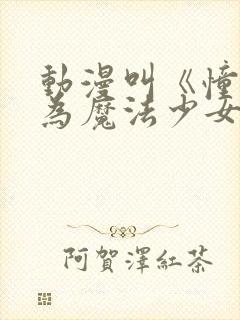 動漫叫《憧
為魔法少女
阿賀澤紅茶